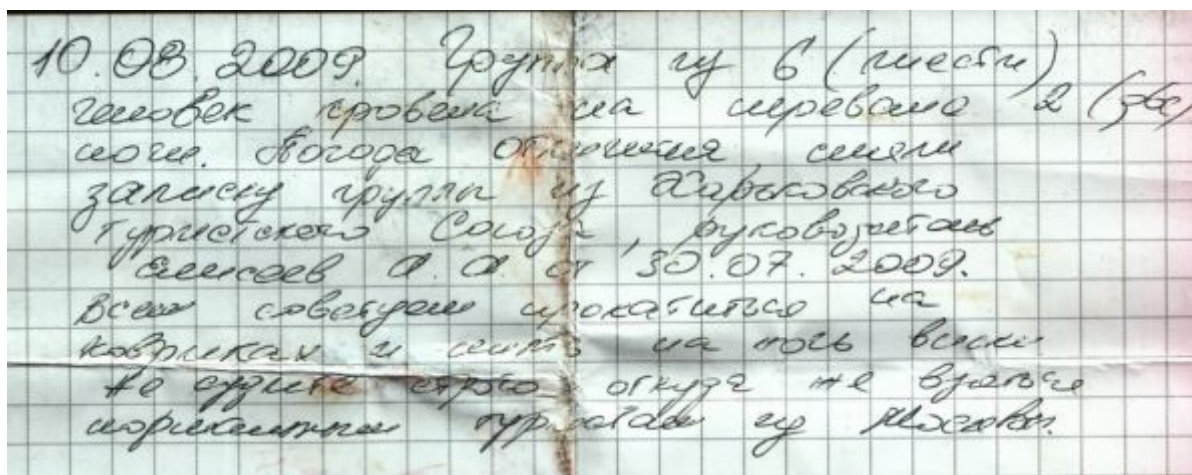 10.08.2009. Группа из 6 (шести)
человек провела на перевале 2 (две)
ночи. Погода отличная, сняли
записку группы из Харьковского
туристского Союза, руководитель
Елисеев А.А от 30.07.2009.
Всем советуем прокатиться на
ковриках и пить на ночь виски
Не судите строго откуда же взяться
нормальным туристам из Москвы.